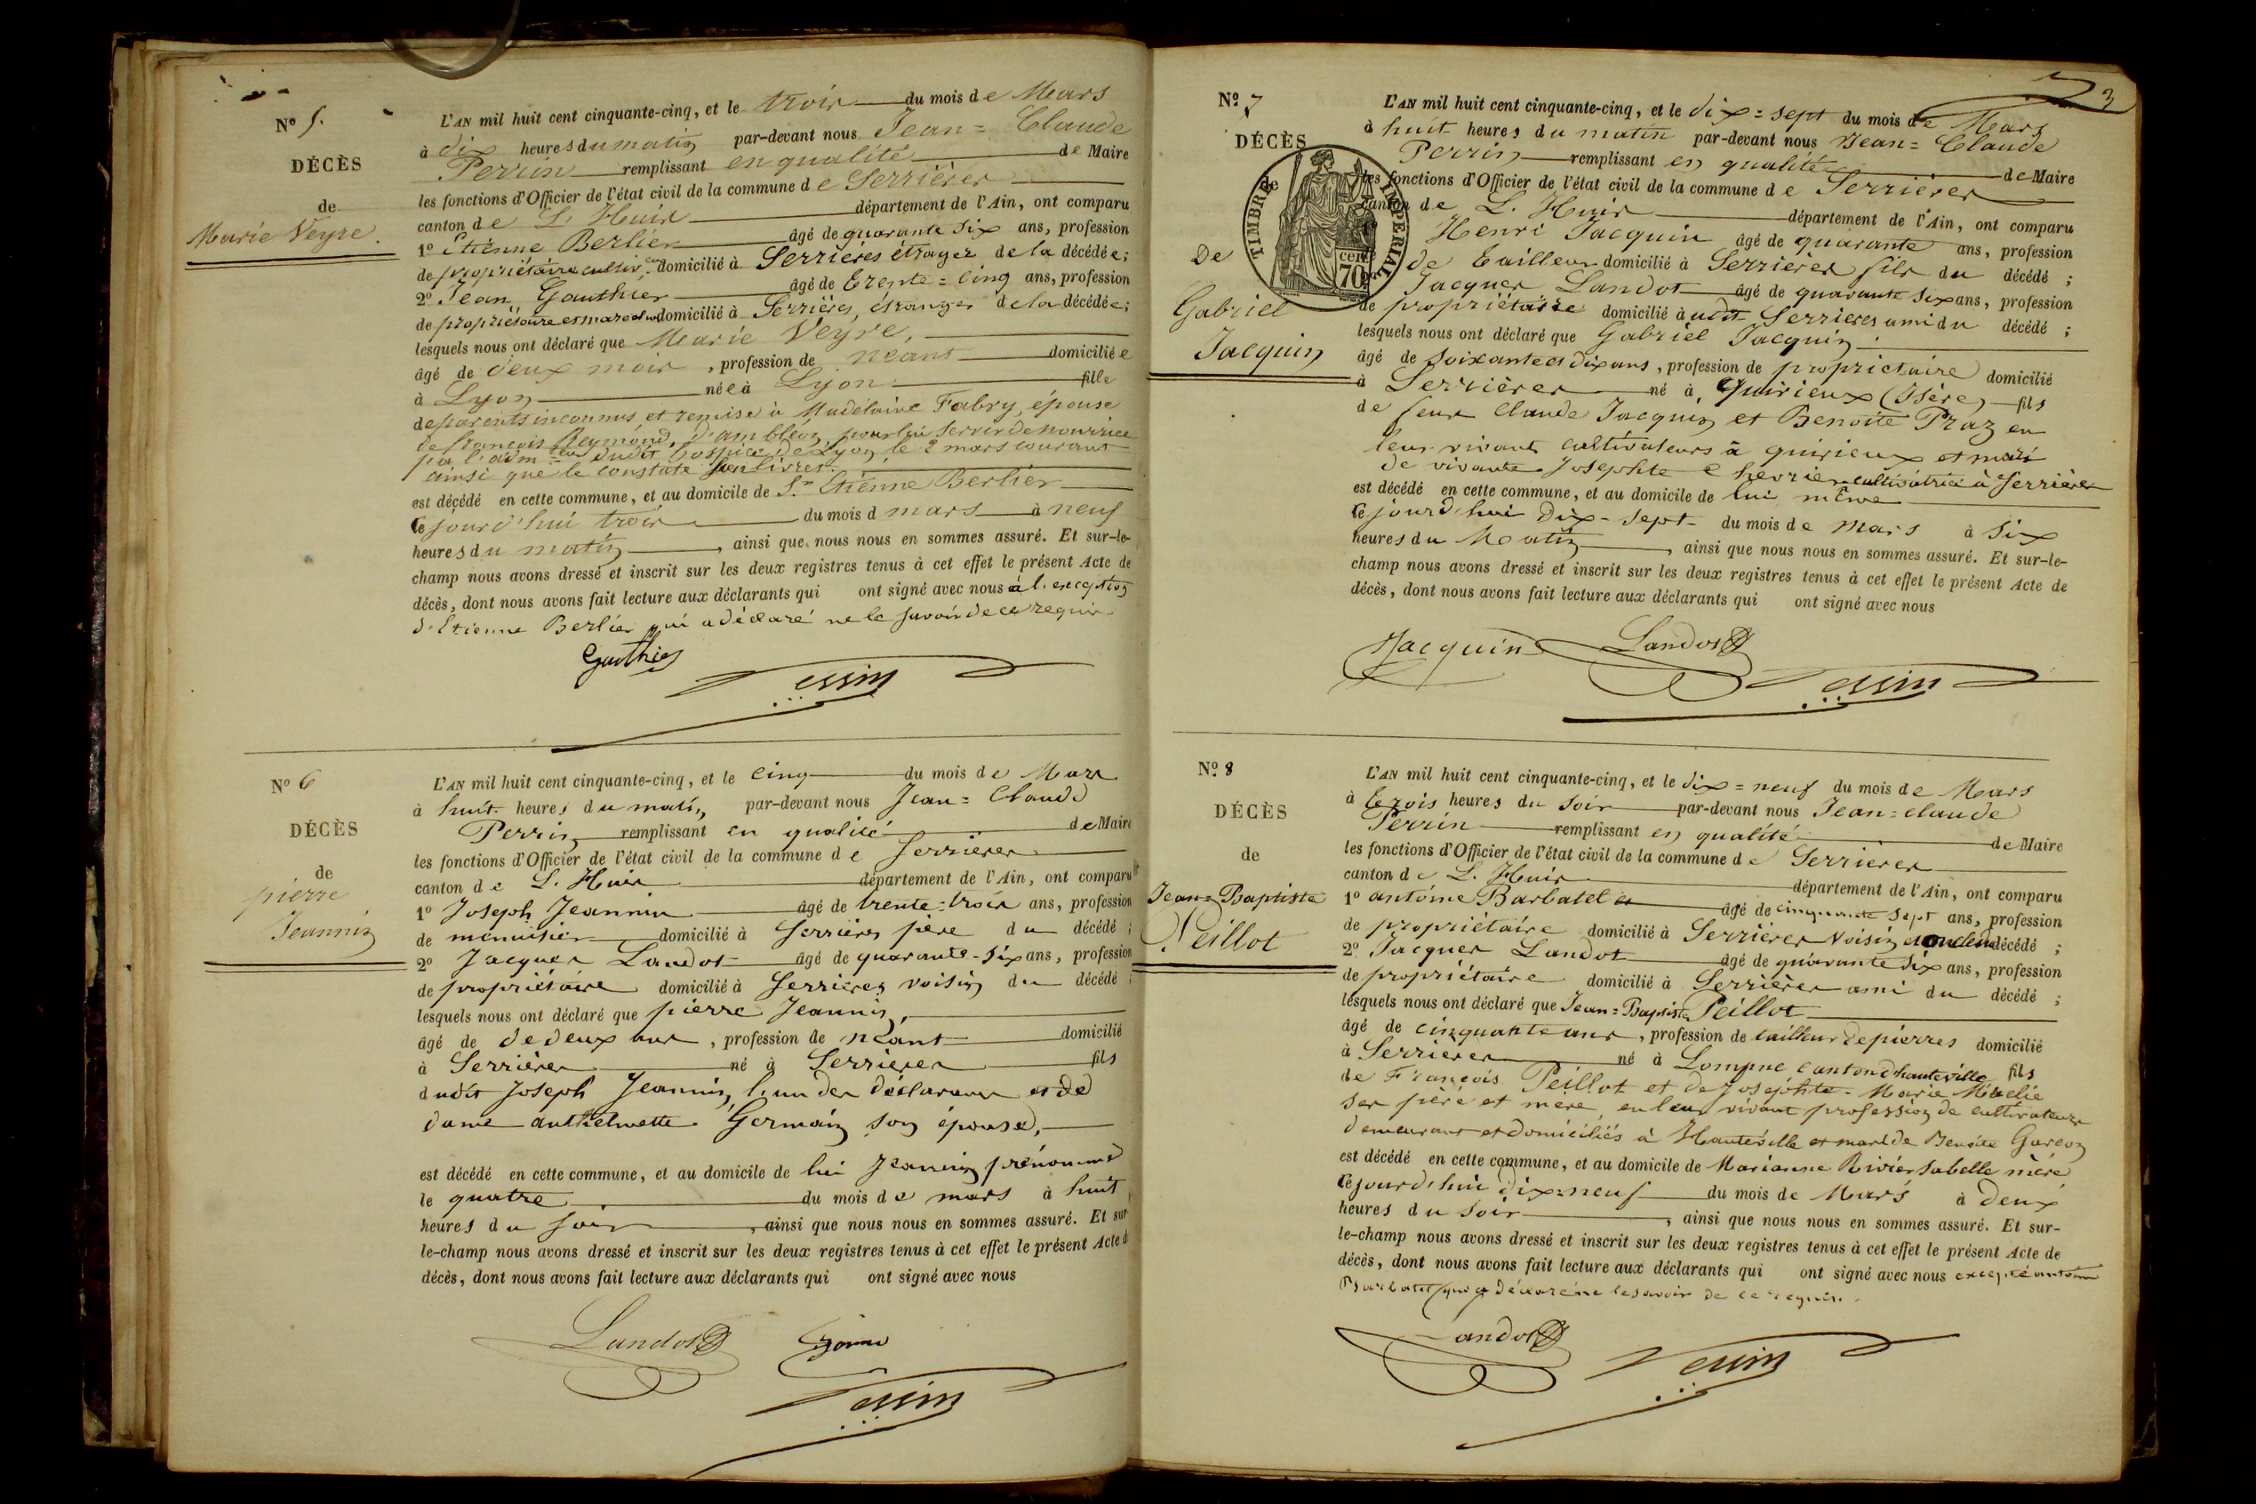 Nº 5.
DÉCÈS
de
Marie Veyre.
L'AN mil huit cent cinquante-cinq, et le trois du mois de Mars
à dix heures du matin par-devant nous Jean=Claude
Perrin remplissant en qualité de Maire
les fonctions d'Officier de l'état civil de la commune de Serrières
canton de L'Huis département de l'Ain, ont comparu
1º Etienne Berlier âgé de quarante six ans, profession
de propriétaire cultiv. domicilié à Serrières étranger de la décédée;
2º Jean Gauthier âgé de trente=cinq ans, profession
de propriétaire et domicilié à Serrières, étranger de la décédée;
lesquels nous ont déclaré que Marie Veyre,
âgé de deux mois, profession de néant domiciliée
à Lyon née à Lyon fille
de parents inconnus, et remise à Madelaine Fabry, épouse
de François Reymond, d'ambléon, pour lui servir de nourrice
par l'adm.on dudit hospice de Lyon le 2 mars courant
ainsi que le constate son livret.
est décédé en cette commune, et au domicile de Sr Etienne Berlier
ce jourd'hui trois du mois d mars à neuf
heures du matin, ainsi que nous nous en sommes assuré. Et sur-le-
champ nous avons dressé et inscrit sur les deux registres tenus à cet effet le présent Acte de
décès, dont nous avons fait lecture aux déclarants qui ont signé avec nous à l'exception
d'Etienne Berlier qui a déclaré ne le savoir de ce requis
Gauthier
Perrin
Nº 6
DÉCÈS
de
pierre
Jeannin
L'AN mil huit cent cinquante-cinq, et le cinq du mois de Mars
à huit heures du matin, par-devant nous Jean=Claude
Perrin remplissant en qualité de Maire
les fonctions d'Officier de l'état civil de la commune de Serrières
canton de L'Huis département de l'Ain, ont comparu
1º Joseph Jeannin âgé de trente=trois ans, profession
de menuisier domicilié à Serrières père du décédé;
2º Jacques Landot âgé de quarante-six ans, profession
de propriétaire domicilié à Serrières voisin du décédé;
lesquels nous ont déclaré que pierre Jeannin,
âgé de de deux ans, profession de néant domicilié
à Serrières né à Serrières fils
dudit Joseph Jeannin, l'un des déclarans et de
dame anthelmette Germain son épouse,
est décédé en cette commune, et au domicile de lui Jeannin prénommé
le quatre du mois de mars à huit
heures du soir, ainsi que nous nous en sommes assuré. Et sur
le-champ nous avons dressé et inscrit sur les deux registres tenus à cet effet le présent Acte d
décès, dont nous avons fait lecture aux déclarants qui ont signé avec nous
Landot
Perrin
3
Nº 7
DÉCÈS
de
De
Gabriel
Jacquin
TIMBRE IMPERIAL
70 cent.
L'AN mil huit cent cinquante-cinq, et le dix=sept du mois de Mars
à huit heures du matin par-devant nous Jean=Claude
Perrin remplissant en qualité de Maire
les fonctions d'Officier de l'état civil de la commune de Serrières
canton de L'Huis département de l'Ain, ont comparu
Henri Jacquin âgé de quarante ans, profession
de Tailleur domicilié à Serrières fils du décédé;
Jacques Landot âgé de quarante six ans, profession
de propriétaire domicilié à udit Serrières ami du décédé;
lesquels nous ont déclaré que Gabriel Jacquin
âgé de soixante et dix ans, profession de propriétaire domicilié
à Serrières né à Quirieux (Isère) fils
de feus Claude Jacquin et Benoite Praz en
leur vivant cultivateurs à quirieux et mari
de vivante Josephte Chevrier cultivatrice à Serrières
est décédé en cette commune, et au domicile de lui même
ce jourd'hui Dix-sept du mois de Mars à six
heures du Matin, ainsi que nous nous en sommes assuré. Et sur-le-
champ nous avons dressé et inscrit sur les deux registres tenus à cet effet le présent Acte de
décès, dont nous avons fait lecture aux déclarants qui ont signé avec nous
Jacquin Landot
Perrin
Nº 8
DÉCÈS
de
Jean=Baptiste
Peillot
L'AN mil huit cent cinquante-cinq, et le dix=neuf du mois de Mars
à trois heures du soir par-devant nous Jean=claude
Perrin remplissant en qualité de Maire
les fonctions d'Officier de l'état civil de la commune de Serrières
canton de L'Huis département de l'Ain, ont comparu
1º antoine Barbatel âgé de cinquante sept ans, profession
de propriétaire domicilié à Serrières voisin et oncle du décédé;
2º Jacques Landot âgé de quarante six ans, profession
de propriétaire domicilié à Serrières ami du décédé;
lesquels nous ont déclaré que Jean=Baptiste Peillot
âgé de cinquante ans, profession de tailleur de pierres domicilié
à Serrières né à Lompne canton d'hauteville fils
de François Peillot et de Josephte-Marie
ses père et mère, en leur vivant profession de cultivateurs
demeurant et domiciliés à Hauteville et mari de Benoite
est décédé en cette commune, et au domicile de Marianne Rivier sa belle mère
ce jourd'hui dix=neuf du mois de Mars à deux
heures du soir, ainsi que nous nous en sommes assuré. Et sur-
le-champ nous avons dressé et inscrit sur les deux registres tenus à cet effet le présent Acte de
décès, dont nous avons fait lecture aux déclarants qui ont signé avec nous excepté antoine
Barbatel qui a déclaré ne le savoir de ce requis.
Landot
Perrin